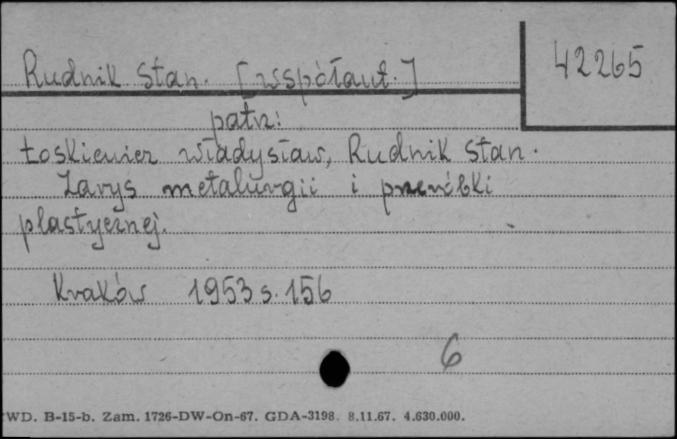 42265
Rudnik Stan. [współaut.]
patrz:
Łoskiewicz Władysław, Rudnik Stan.
Zarys metalurgii i przeróbki
plastycznej.
Kraków 1953 s. 156
6
WD. B-15-b. Zam. 1726-DW-On-67. GDA-3198. 8.11.67. 4.630.000.